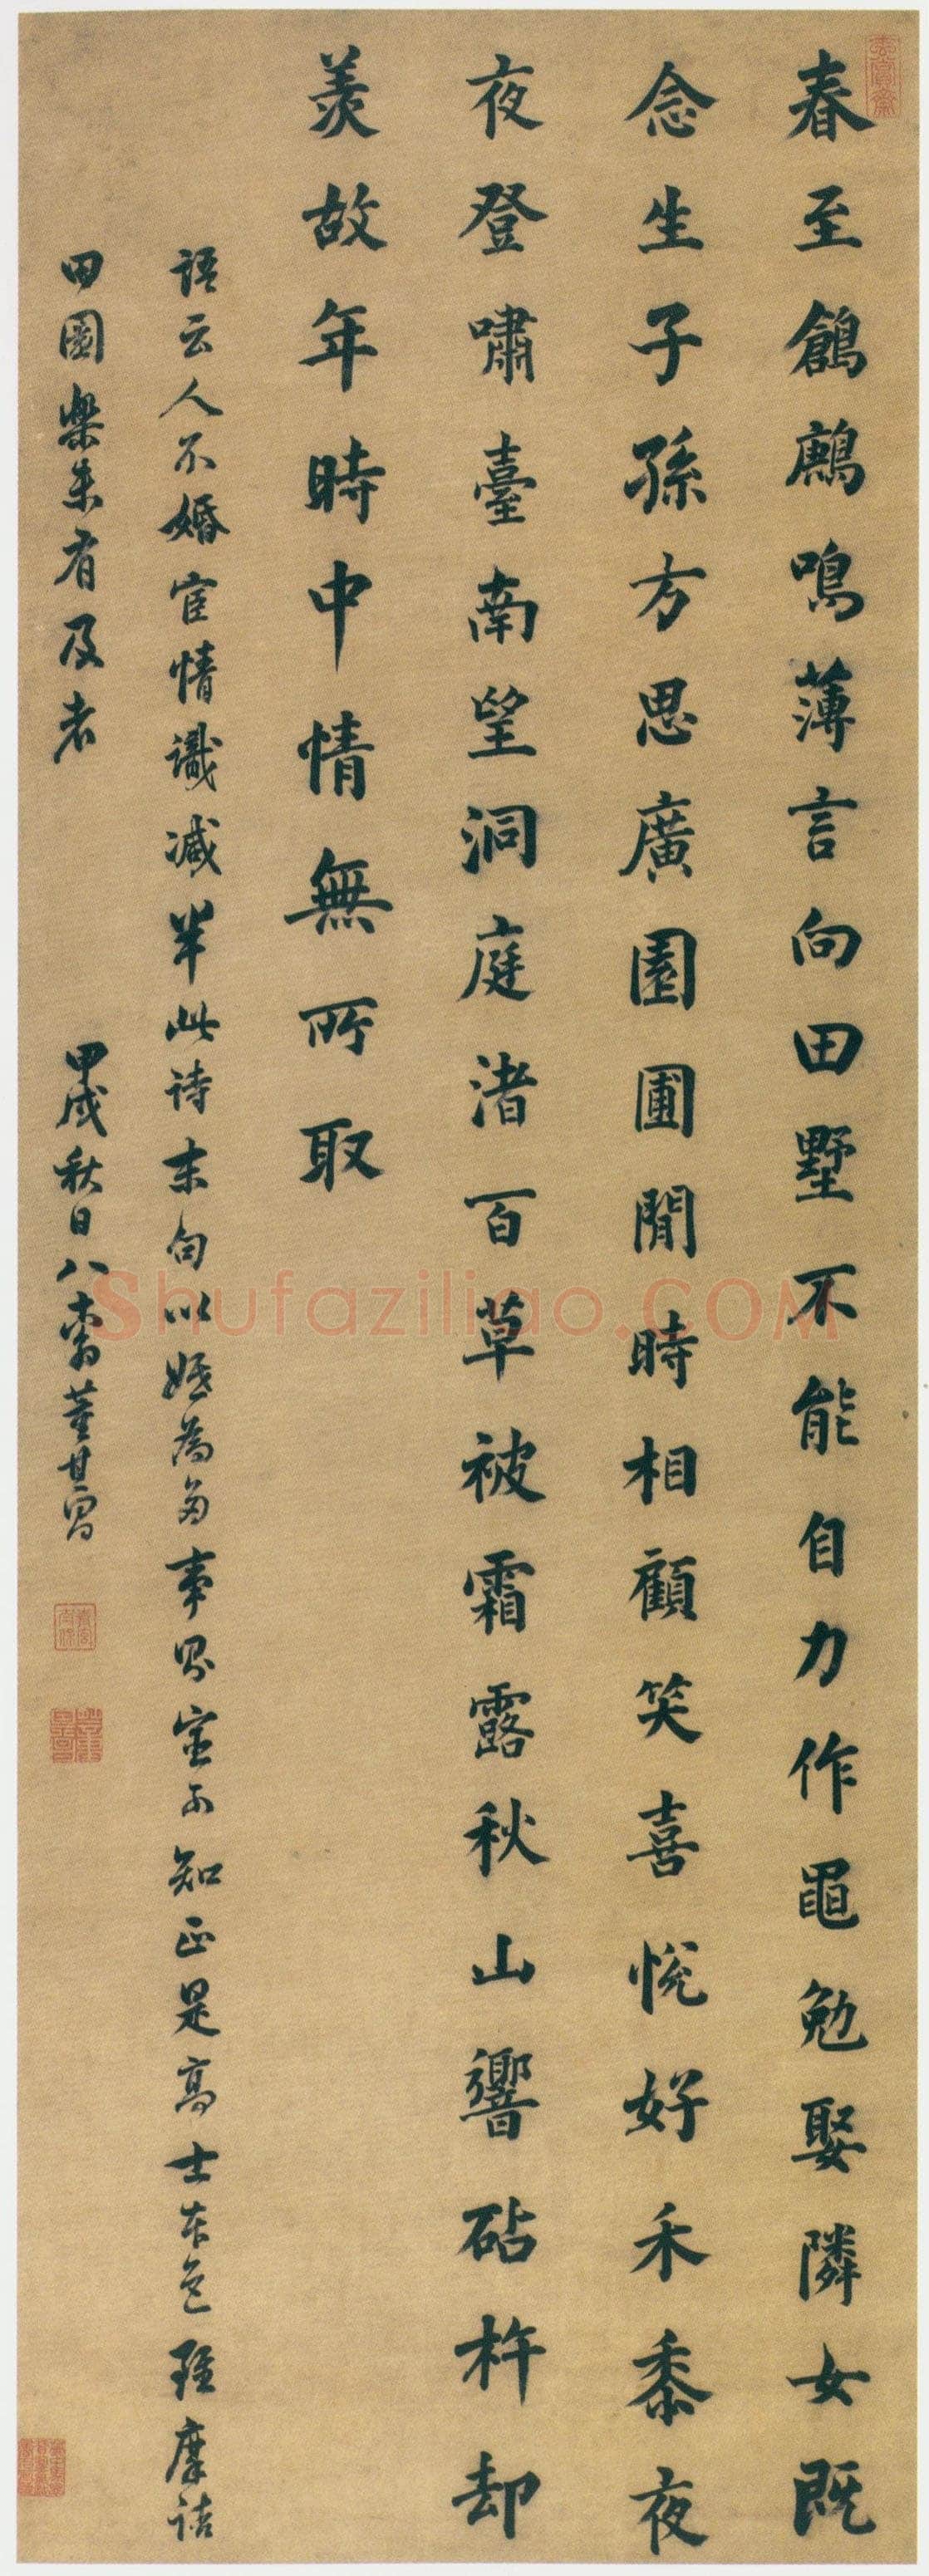 玄賞齋
春至鶬鶊鳴薄言向田墅不能自力作黽勉娶隣女既
念生子孫方思廣園圃閒時相顧笑喜悅好禾黍夜
夜登嘯臺南望洞庭渚百草被霜露秋山響砧杵却
羨故年時中情無所取
語云人不婚宦情識減半此诗末句以婚為多事不知正是高士本色雖摩詰
田園樂未有及者 甲戌秋日八十翁董其昌
Shufaziliao.COM